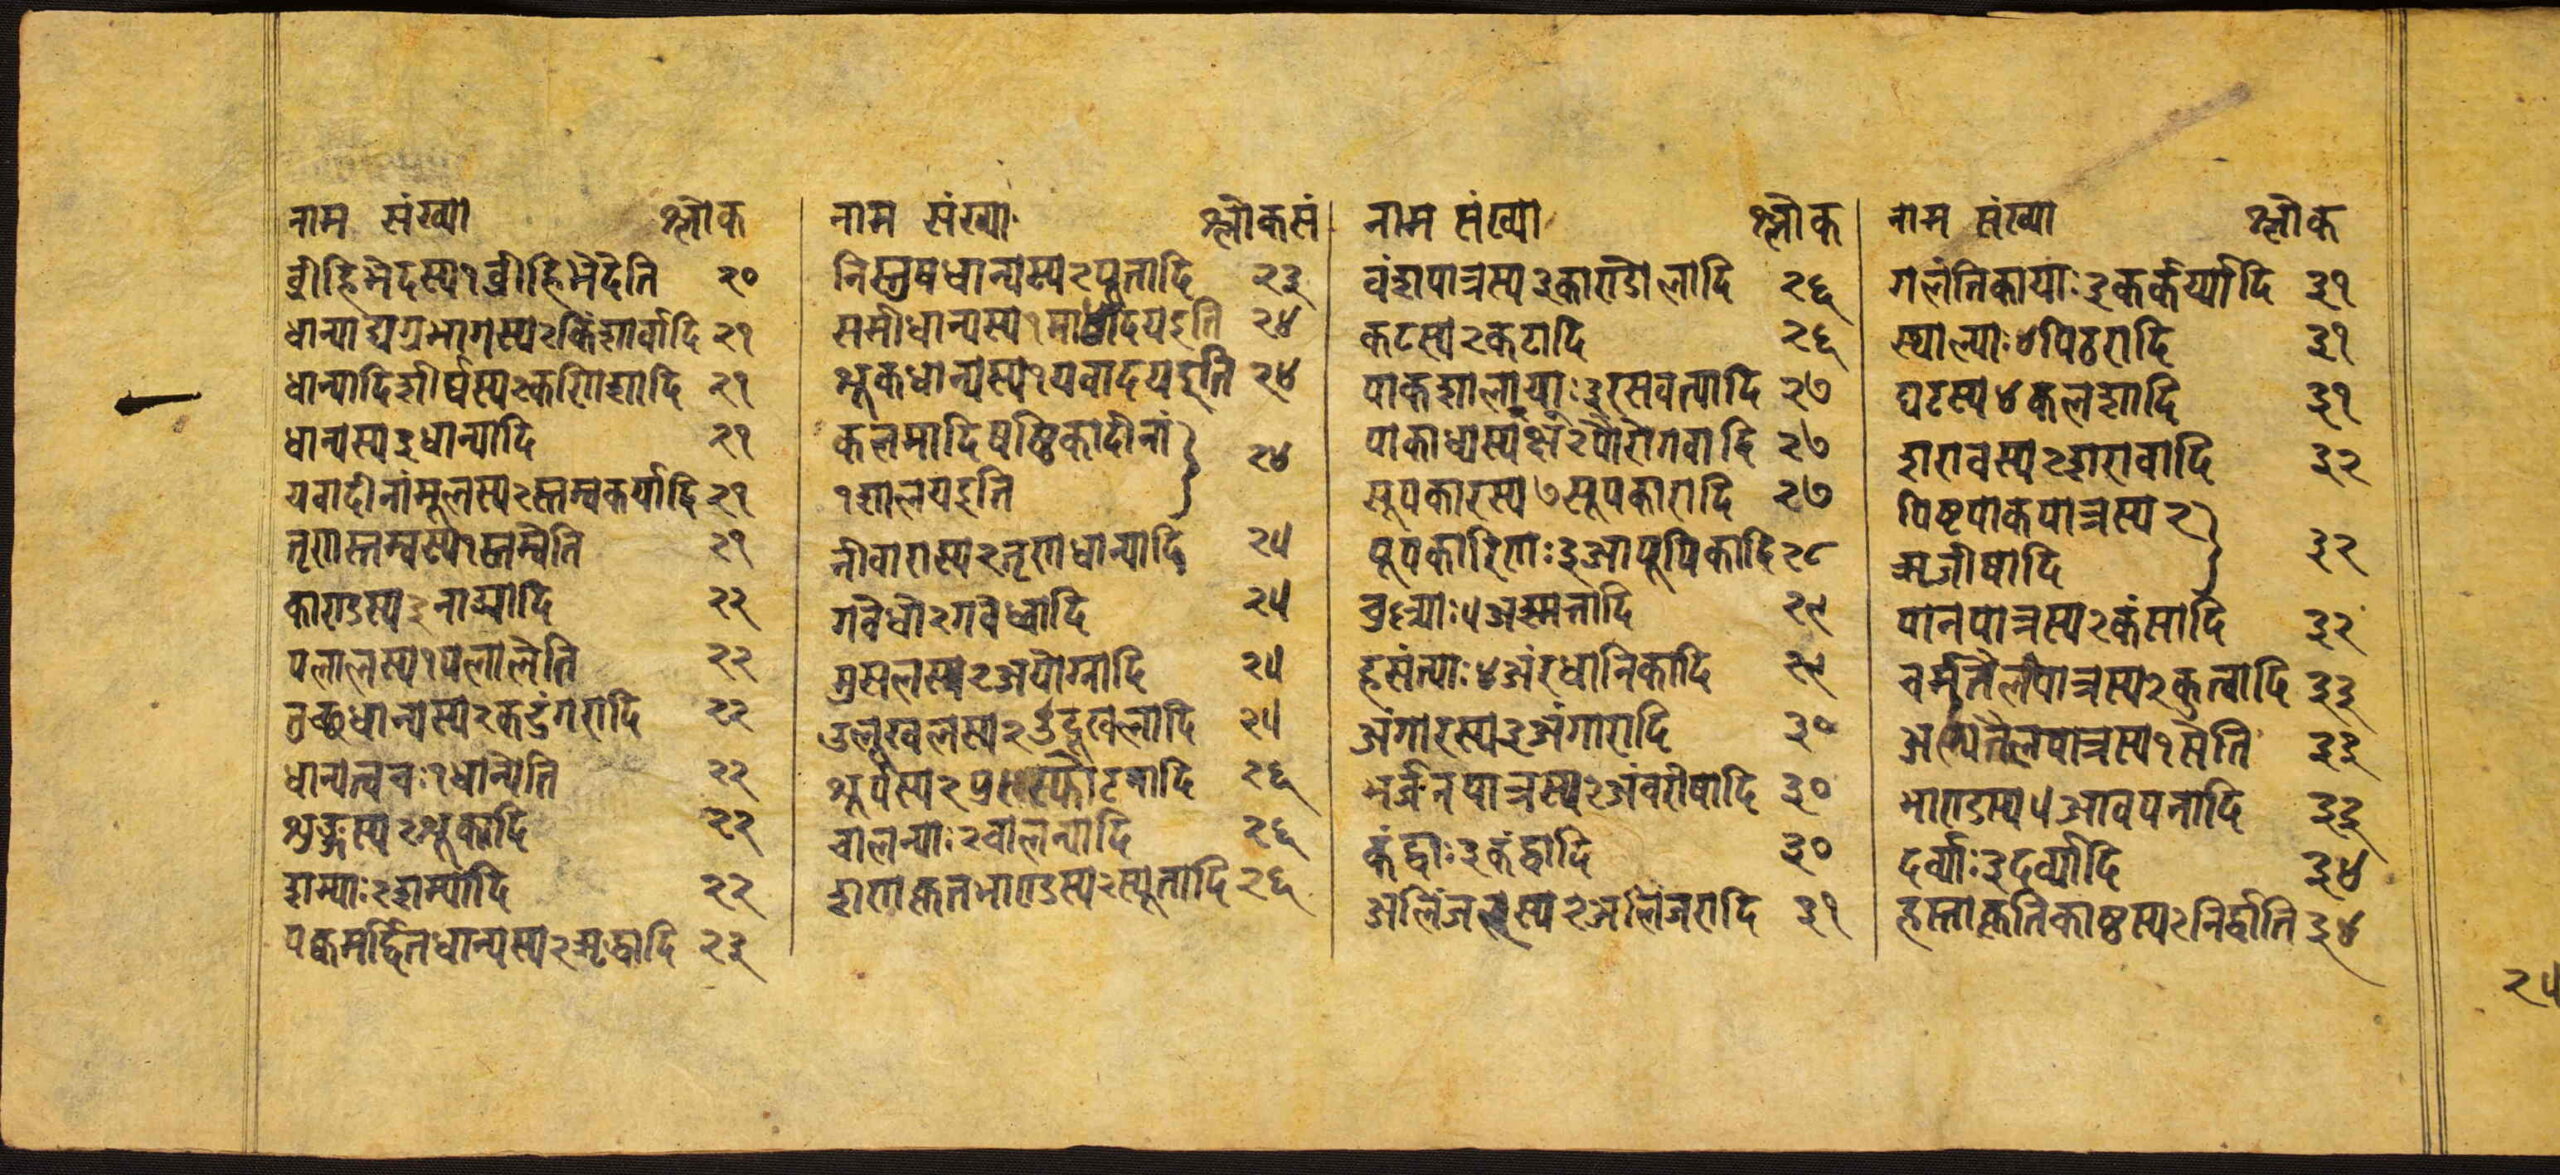 नाम संख्या श्लोक
व्रीहिभेदस्य१व्रीहिभेदेति २०
धान्याद्यग्रभागस्य२किंशार्वादि २१
धान्यादिशीर्षस्य२कणिशादि २१
धान्यस्य३धान्यादि २१
यवादीनांमूलस्य२स्तम्बकर्यादि २१
तृणस्तम्बस्य१स्तम्बेति २१
काण्डस्य३नाड्यादि २२
पलालस्य१पलालेति २२
तुच्छधान्यस्य२कडंगरादि २२
धान्यत्वचः१धान्येति २२
शुङ्गस्य२शूकादि २२
शम्याः२शम्यादि २२
पक्वमर्द्दितधान्यस्य२ऋद्धादि २३
नाम संख्या श्लोकसं
निस्तुषधान्यस्य२पूतादि २३
समीधान्यस्य१माषादयइति २४
शूकधान्यस्य१यवादयइति २४
कलमादिषष्ठिकादीनां
१शालयइति २४
नीवारास्य२तृणधान्यादि २५
गवेधौ२गवेध्वादि २५
मुसलस्य२अयोग्रादि २५
उलूखलस्य२उदूखलादि २५
शूर्पस्य२प्रस्फोटनादि २६
चालन्याः२चालन्यादि २६
शणकृतभाण्डस्य२स्यूतादि २६
नाम संख्या श्लोक
वंशपात्रस्य३काण्डोलादि २६
कटस्य२कटादि २६
पाकशालायाः३रसवत्यादि २७
पाकाध्यस्यक्ष२पौरोगवादि २७
सूपकारस्य७सूपकारादि २७
पूपकारिणः३आपूपिकादि २८
चुल्याः५अश्मन्तादि २९
हसंत्याः४अंरधानिकादि २९
अंगारस्य३अंगारादि ३०
भर्जनपात्रस्य२अंवरीषादि ३०
कंद्वाः३कंद्वादि ३०
अलिंजरस्य२अलिंजरादि ३१
नाम संख्या श्लोक
गलंतिकायाः३कर्कर्य्यादि ३१
स्थाल्याः४पिठरादि ३१
घटस्य४कलशादि ३१
शरावस्य२शरावादि ३२
पिष्टपाकपात्रस्य२
ऋजीषादि ३२
पानपात्रस्य२कंसादि ३२
चर्मतैलपात्रस्य२कुत्वादि ३३
अल्पतैलपात्रस्य१सेति ३३
भाण्डस्य५आवपनादि ३३
दर्व्याः३दर्व्यादि ३४
हस्ताकृतिकाष्ठस्य२निर्द्वाति ३४
२५